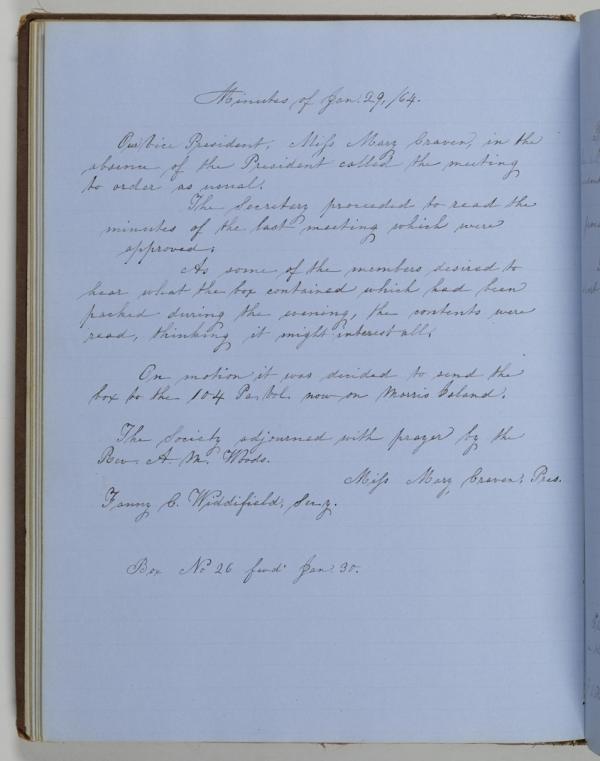 Minutes of Jan. 29, /64.
Our Vice President, Miss Mary Craven, in the
absence of the President called the meeting
to order as usual.
The Secretary proceeded to read the
minutes of the last meeting which were
approved.
As some of the members desired to
hear what the box contained which had been
packed during the evening, the contents were
read, thinking it might interest all.
On motion it was decided to send the
box to the 104 Pa. Vol. now on Morris Island.
The Society adjourned with prayer by the
Rev. A. M. Woods.
Miss Mary Craven, Pres.
Fanny C. Widdifield, Sec.y.
Box No 26 fwd. Jan. 30.